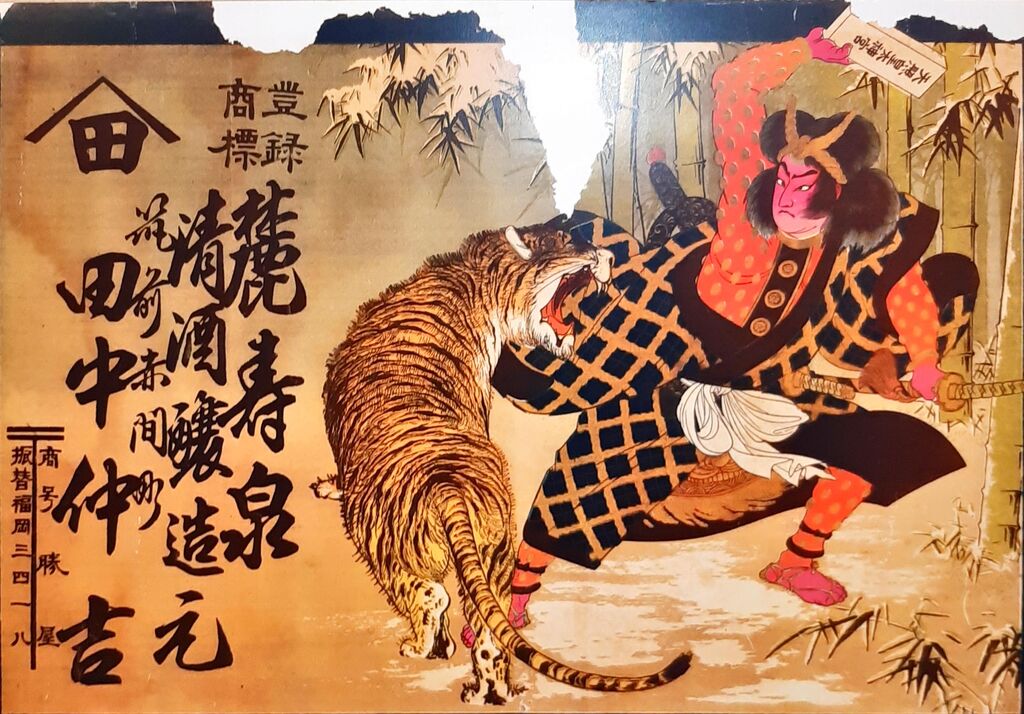 天照皇大神宮
登録
商標
麓寿泉
清酒釀造元
筑前赤間町
田
田中仲吉
商号勝屋
振替福岡三四一八